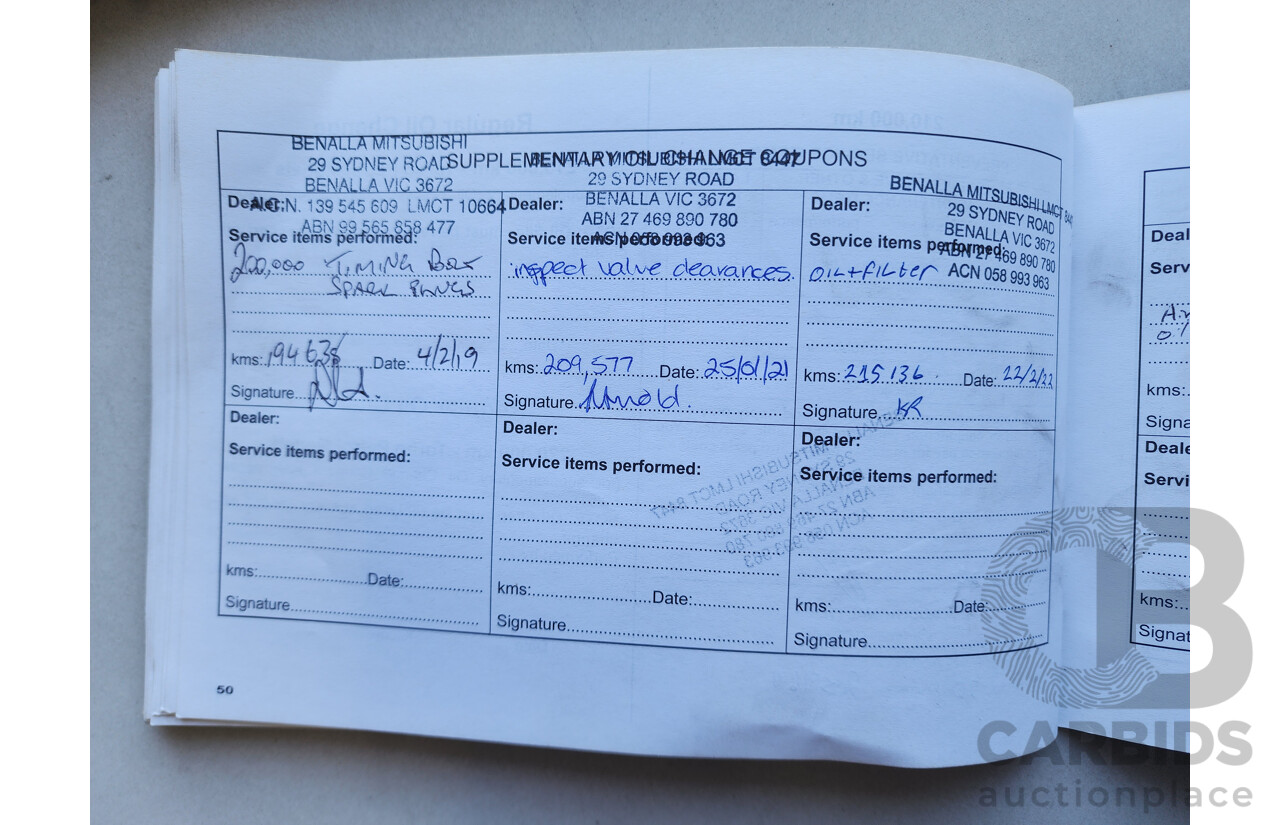 SUPPLEMENTARY OIL CHANGE COUPONS
BENALLA MITSUBISHI
29 SYDNEY ROAD
BENALLA VIC 3672
A.C.N. 139 545 609 LMCT 10664
ABN 99 565 858 477
Dealer:
Service items performed:
200,000 TIMING BELT
SPARK PLUGS
kms: 194638 Date: 4/2/19
Signature
BENALLA MITSUBISHI LMCT 8447
29 SYDNEY ROAD
BENALLA VIC 3672
ABN 27 469 890 780
ACN 058 993 963
Dealer:
Service items performed:
inspect valve clearances.
kms: 209,577 Date: 25/01/21
Signature Arnold.
BENALLA MITSUBISHI LMCT 8447
29 SYDNEY ROAD
BENALLA VIC 3672
ABN 27 469 890 780
ACN 058 993 963
Dealer:
Service items performed:
OIL + FILTER
kms: 215 136 Date: 22/2/22
Signature KR
Dealer:
Service items performed:
kms: Date:
Signature
Dealer:
Service items performed:
kms: Date:
Signature
Dealer:
Service items performed:
kms: Date:
Signature
BENALLA MITSUBISHI LMCT 8447
29 SYDNEY ROAD
BENALLA VIC 3672
ABN 27 469 890 780
ACN 058 993 963
50
Deal
Serv
kms:
Signa
Deale
Servi
kms:
Signat
CB
CARBIDS
auctionplace